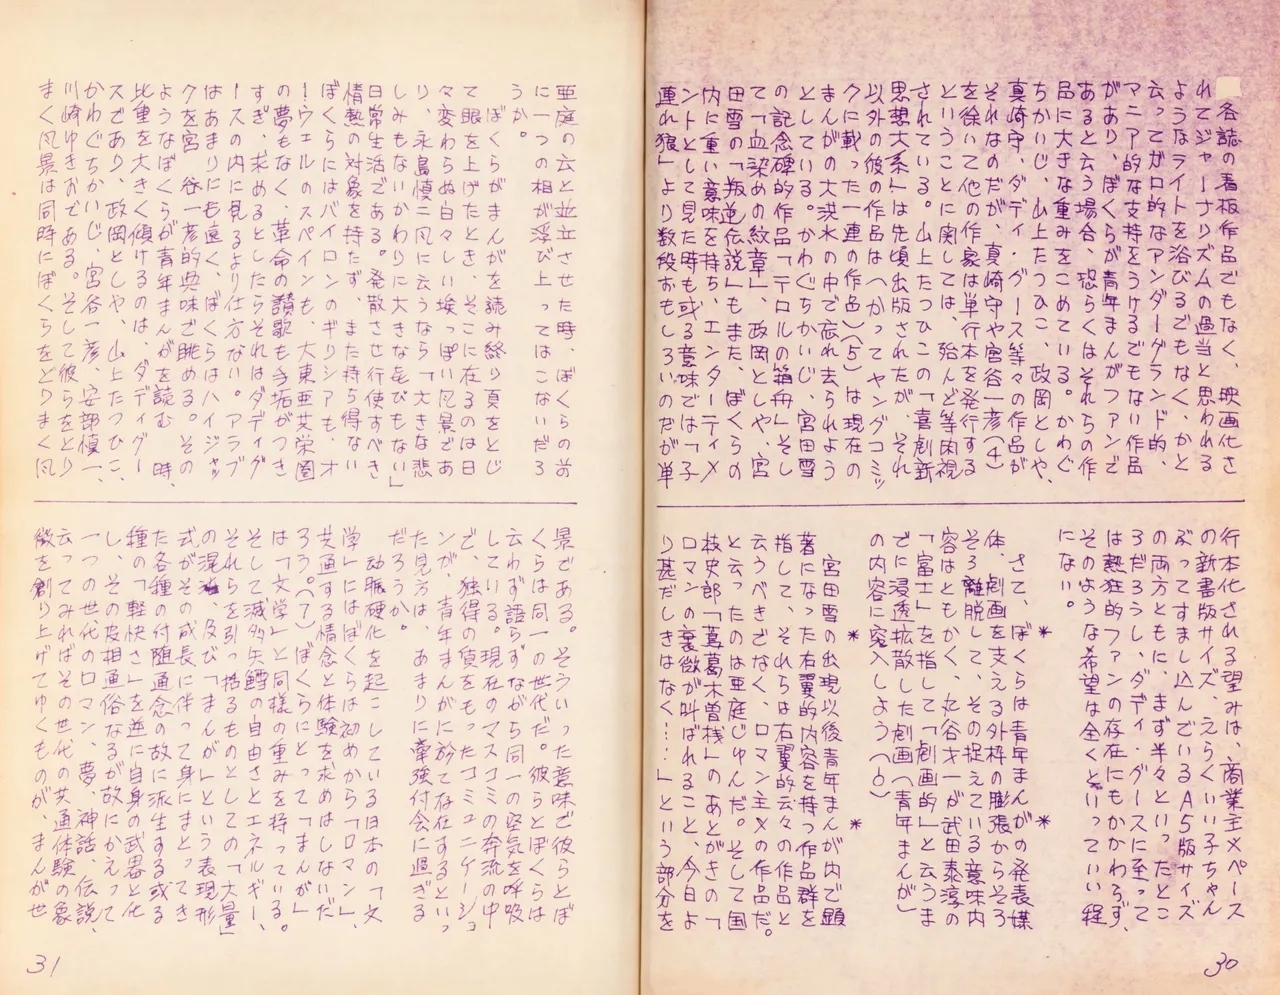 各誌の看板作品でもなく、映画化さ
れてジャーナリズムの過当と思われる
ようなライトを浴びるでもなく、かと
云ってガロ的なアンダーグランド的、
マニア的な支持をうけるでもない作品
があり、ぼくらが青年まんがファンで
あると云う場合、恐らくはそれらの作
品に大きな重みをこめている。かわぐ
ちかいじ、山上たつひこ、政岡としや、
真崎守、ダディ・グース等々の作品が
それなのだが、真崎守や宮谷一彦(4)
を徐いて他の作家は単行本を発行する
ということに関しては、殆んど等閑視
されている。山上たつひこの「喜劇新
思想大系」は先頃出版されたが、それ
以外の彼の作品は(かつてヤングコミッ
クに載った一連の作品)(5)は現在の
まんがの大洪水の中で忘れ去られよう
としている。かわぐちかいじ、宮田雪
の記念碑的作品「テロルの箱舟」そし
て「血染めの紋章」、政岡としや、宮
田雪の「叛逆伝説」もまた、ぼくらの
内に重い意味を持ち、エンターティメ
ントとして見た時も或る意味では「子
連れ狼」より数段おもしろいのだが単
行本化される望みは、商業主義ベース
の新書版サイズ、えらくいい子ちゃん
ぶってすまし込んでいるA5版サイズ
の両方ともに、まず半々といったとこ
ろだろうし、ダディ・グースに至って
は熱狂的ファンの存在にもかかわらず、
そのような希望は全くといっていい程
にない。
* *
さて、ぼくらは青年まんがの発表媒
体、劇画を支える外枠の膨張からそろ
そろ離脱して、その捉えている意味内
容はともかく、丸谷才一が武田泰淳の
「富士」を指して「劇画的」と云うま
でに浸透拡散した劇画(青年まんが)
の内容に容入しよう(6)
* *
宮田雪の出現以後青年まんが内で顕
著になった右翼的内容を持つ作品群を
指して、それらは右翼的云々の作品と
云うべきでなく、ロマン主義の作品だ。
と云ったのは亜庭じゅんだ。そして国
枝史郎「蔦葛木曽桟」のあとがきの「
ロマンの衰微が叫ばれること、今日よ
り甚だしきはなく……」という部分を
30
亜庭の云と並立させた時、ぼくらの前
に一つの相が浮び上ってはこないだろ
うか。
ぼくらがまんがを読み終り頁をとじ
て眼を上げたとき、そこに在るのは日
々変わらぬ白々しい埃っぽい風景であ
り、永島慎二風に云うなら「大きな悲
しみもないかわりに大きな㐂びもない」
日常生活である。発散させ行使すべき
情熱の対象を持たず、また持ち得ない
ぼくらにはバイロンのギリシアも、オ
ーウェルのスペインも、大東亜共栄圏
の夢もなく、革命の讃歌も手垢がつき
すぎ、求めるとしたらそれはダディグ
ースの内に見るより仕方ない。アラブ
はあまりにも遠く、ぼくらはハイジャッ
クを宮谷一彦的興味で眺める。その
ようなぼくらが青年まんがを読む時、
比重を大きく傾けるのは、ダディグー
スであり、政岡としや、山上たつひこ、
かわぐちかいじ、宮谷一彦、安部慎一、
川崎ゆきおである。そして彼らをとり
まく風景は同時にぼくらをとりまく風
景である。そういった意味で彼らとぼ
くらは同一の世代だ。彼らとぼくらは
云わず語らずながら同一の空気を呼吸
している。現在のマスコミの奔流の中
で、独得の値をもったコミュニケーショ
ンが、青年まんがに於て存在するといっ
た見方は、あまりに牽強付会に過ぎる
だろうか。
動脈硬化を起こしている日本の「文
学」にはぼくらは初めから「ロマン」、
共通する情念と体験を求めはしないだ
ろう。(7) ぼくらにとって「まんが」
は「文学」と同様の重みを持っている。
そして滅多矢鱈の自由さとエネルギー、
それらを引っ括るものとしての「大量」
の混、及び「まんが」という表現形
式がその成長に伴って身にまとってき
た各種の付随通念の故に派生する或る
種の「軽快さ」を逆に自身の武器と化
し、その皮相通俗なるが故にかえって
一つの世代のロマン、夢、神話、伝説、
云ってみればその世代の共通体験の象
徴を創り上げてゆくものが、まんが世
31